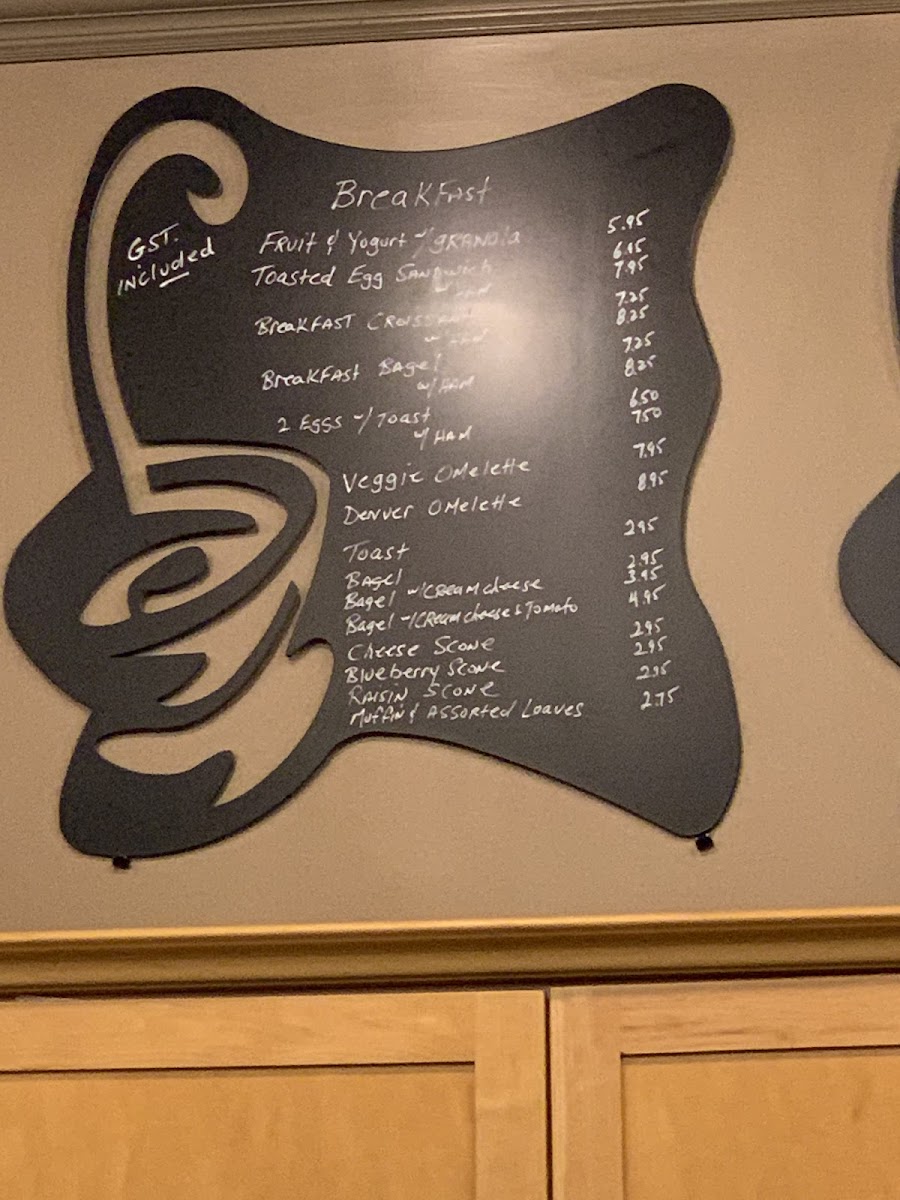 BreakFast
GST.
INCluded
FRuit & Yogurt w/ gRANOla 5.95
Toasted Egg SANdwich
w/ HAM 7.95
BreakFAST CROISSANT 7.25
w/ HAM 8.25
BreakFAst BAgel 7.25
w/ HAM 8.25
2 Eggs w/ Toast 6.50
w/ HAM 7.50
Veggie OMelette 7.95
Denver OMelette 8.95
Toast 2.95
BAgel 2.95
Bagel w/ CREAM cheese 3.95
Bagel w/ CREAM cheese & Tomato 4.95
Cheese Scone 2.95
Blueberry Scone 2.95
RAisiN SCONE 2.95
Muffin & ASSORted Loaves 2.75